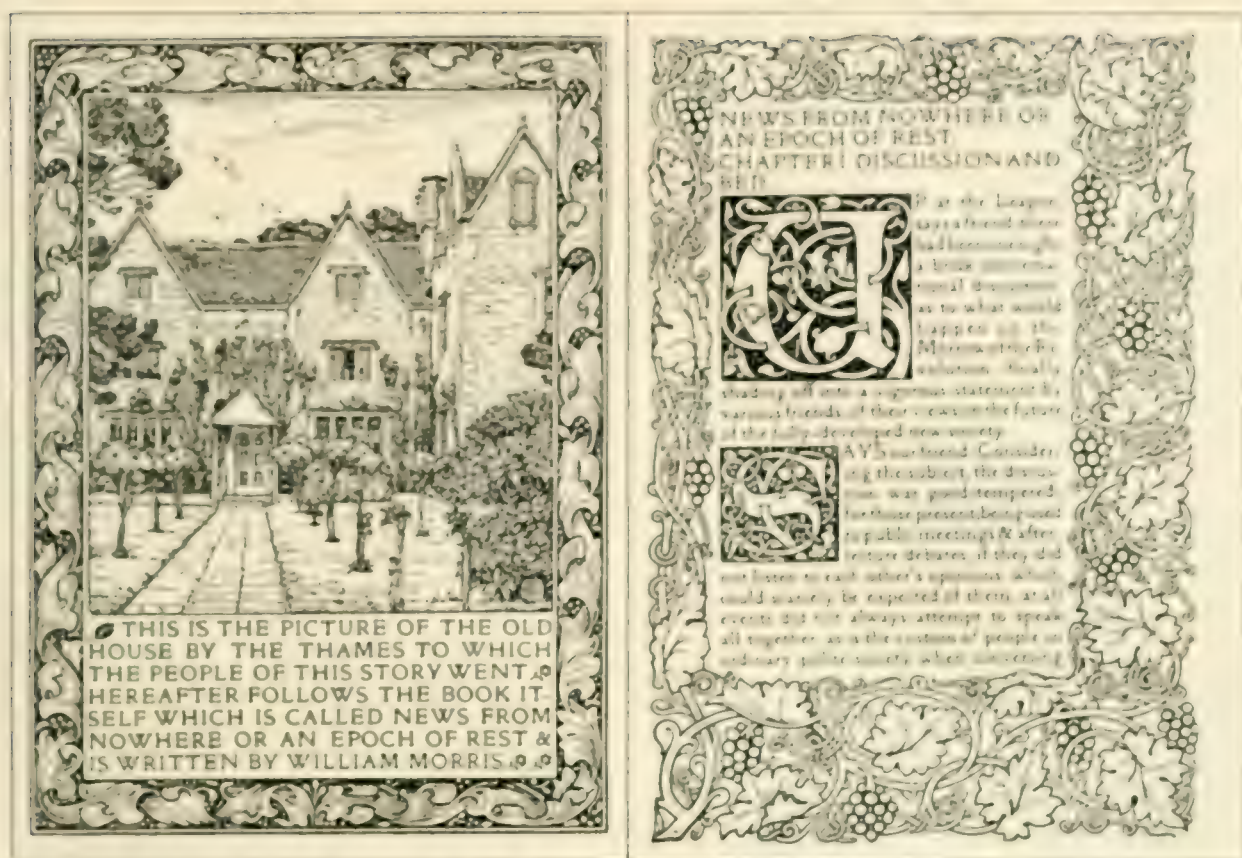 THIS IS THE PICTURE OF THE OLD
HOUSE BY THE THAMES TO WHICH
THE PEOPLE OF THIS STORY WENT
HEREAFTER FOLLOWS THE BOOK IT
SELF WHICH IS CALLED NEWS FROM
NOWHERE OR AN EPOCH OF REST &
IS WRITTEN BY WILLIAM MORRIS
NEWS FROM NOWHERE OR
AN EPOCH OF REST.
CHAPTER I. DISCUSSION AND
BED.
UP at the League,
says a friend, there
had been one night
a brisk
discussion,
as to what would
happen on the
Morrow of the Re-
volution, finally
shading off into a vigorous statement by
various friends, of their views on the future
of the fully-developed new society.
SAYS our friend: Consider-
ing the subject, the discus-
sion was good-tempered;
for those present, being used
to public meetings & after-
lecture debates, if they did
not listen to each other's opinions,
could scarcely be expected of them, at all
events did not always attempt to speak
all together, as is the custom of people in
ordinary polite society when conversing